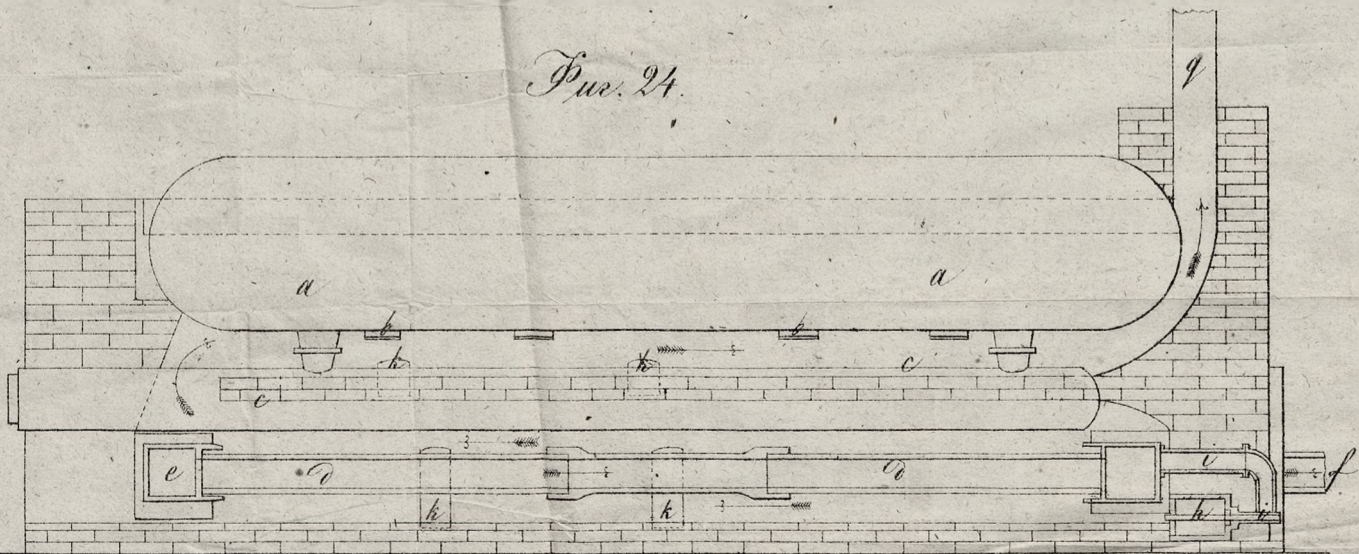 Фиг. 24.
q
a
a
b
b
k
k
c
c
e
d
d
i
f
k
k
h
i